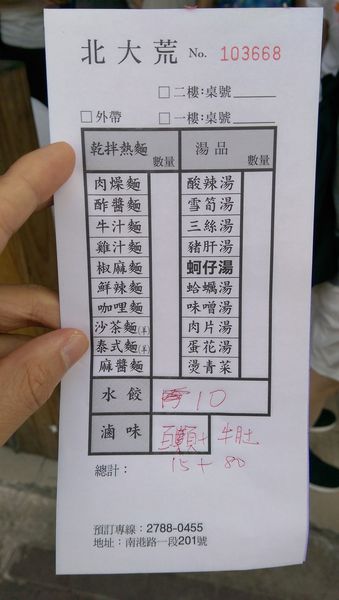 北大荒 No. 103668
□二樓:桌號
□外帶 □一樓:桌號
乾拌熱麵 數量 湯品 數量
肉燥麵 酸辣湯
酢醬麵 雪筍湯
牛汁麵 三絲湯
雞汁麵 豬肝湯
椒麻麵 蚵仔湯
鮮辣麵 蛤蠣湯
咖哩麵 味噌湯
沙茶麵(羊) 肉片湯
泰式麵(羊) 蛋花湯
麻醬麵 燙青菜
水餃 10
滷味 牛肚
總計: 15+80
預訂專線:2788-0455
地址:南港路一段201號